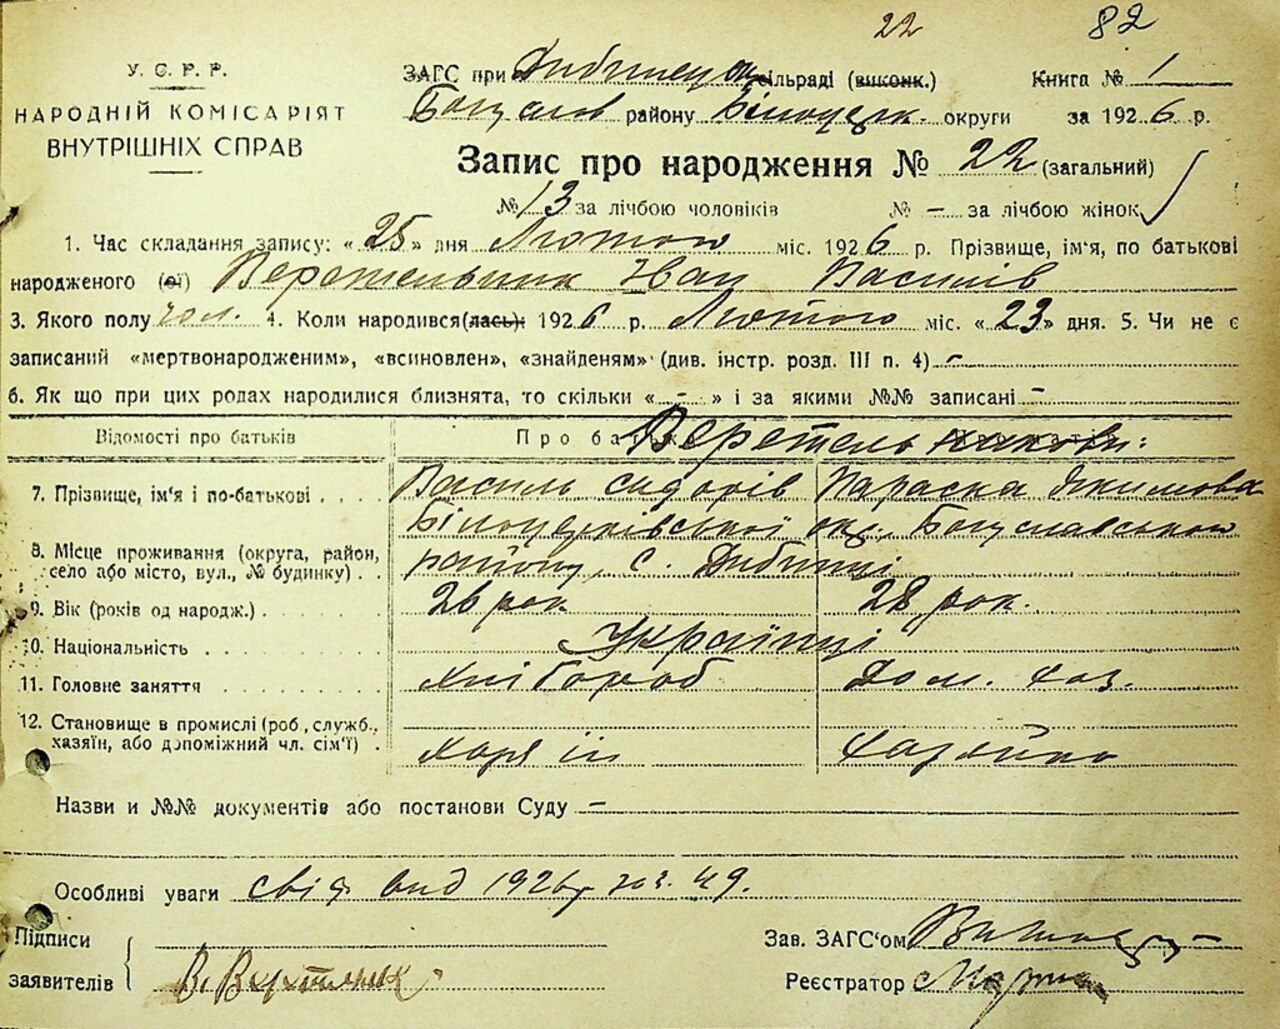 22 82
У. С. Р. Р.
НАРОДНІЙ КОМІСАРІЯТ
ВНУТРІШНІХ СПРАВ
ЗАГС при Дибинецьк сільраді (виконк.) Книга № 1
Богуслав району Білоцерк. округи за 1926 р.
Запис про народження № 22 (загальний)
№ 13 за лічбою чоловіків № – за лічбою жінок
1. Час складання запису: «25» дня Лютого міс. 1926 р. Прізвище, ім'я, по батькові
народженого (ої) Веретельник Іван Василів
3. Якого полу чол. 4. Коли народився (лась): 1926 р. Лютого міс. «23» дня. 5. Чи не є
записаний «мертвонародженим», «всиновлен», «знайденям» (див. інстр. розд. III п. 4) –
6. Як що при цих родах народилися близнята, то скільки « – » і за якими №№ записані –
Відомості про батьків Про батька Веретельникови:
7. Прізвище, ім'я і по-батькові . . . . Василь Сидорів Параска Якимова
Білоцерківської окр. Богуславського
8. Місце проживання (округа, район,
село або місто, вул., № будинку) . . району, с. Дибинці
9. Вік (років од народж.) 26 рок 28 рок.
10. Національність Українці
11. Головне заняття Хлібороб Дом. хаз.
12. Становище в промислі (роб., служб.,
хазяїн, або допоміжний чл. сім'ї) . Хазяїн Хазяйка
Назви и №№ документів або постанови Суду –
Особливі уваги свід. вид 1926 р. за 49.
Підписи
заявителів В. Веретельник
Зав. ЗАГС'ом
Реєстратор